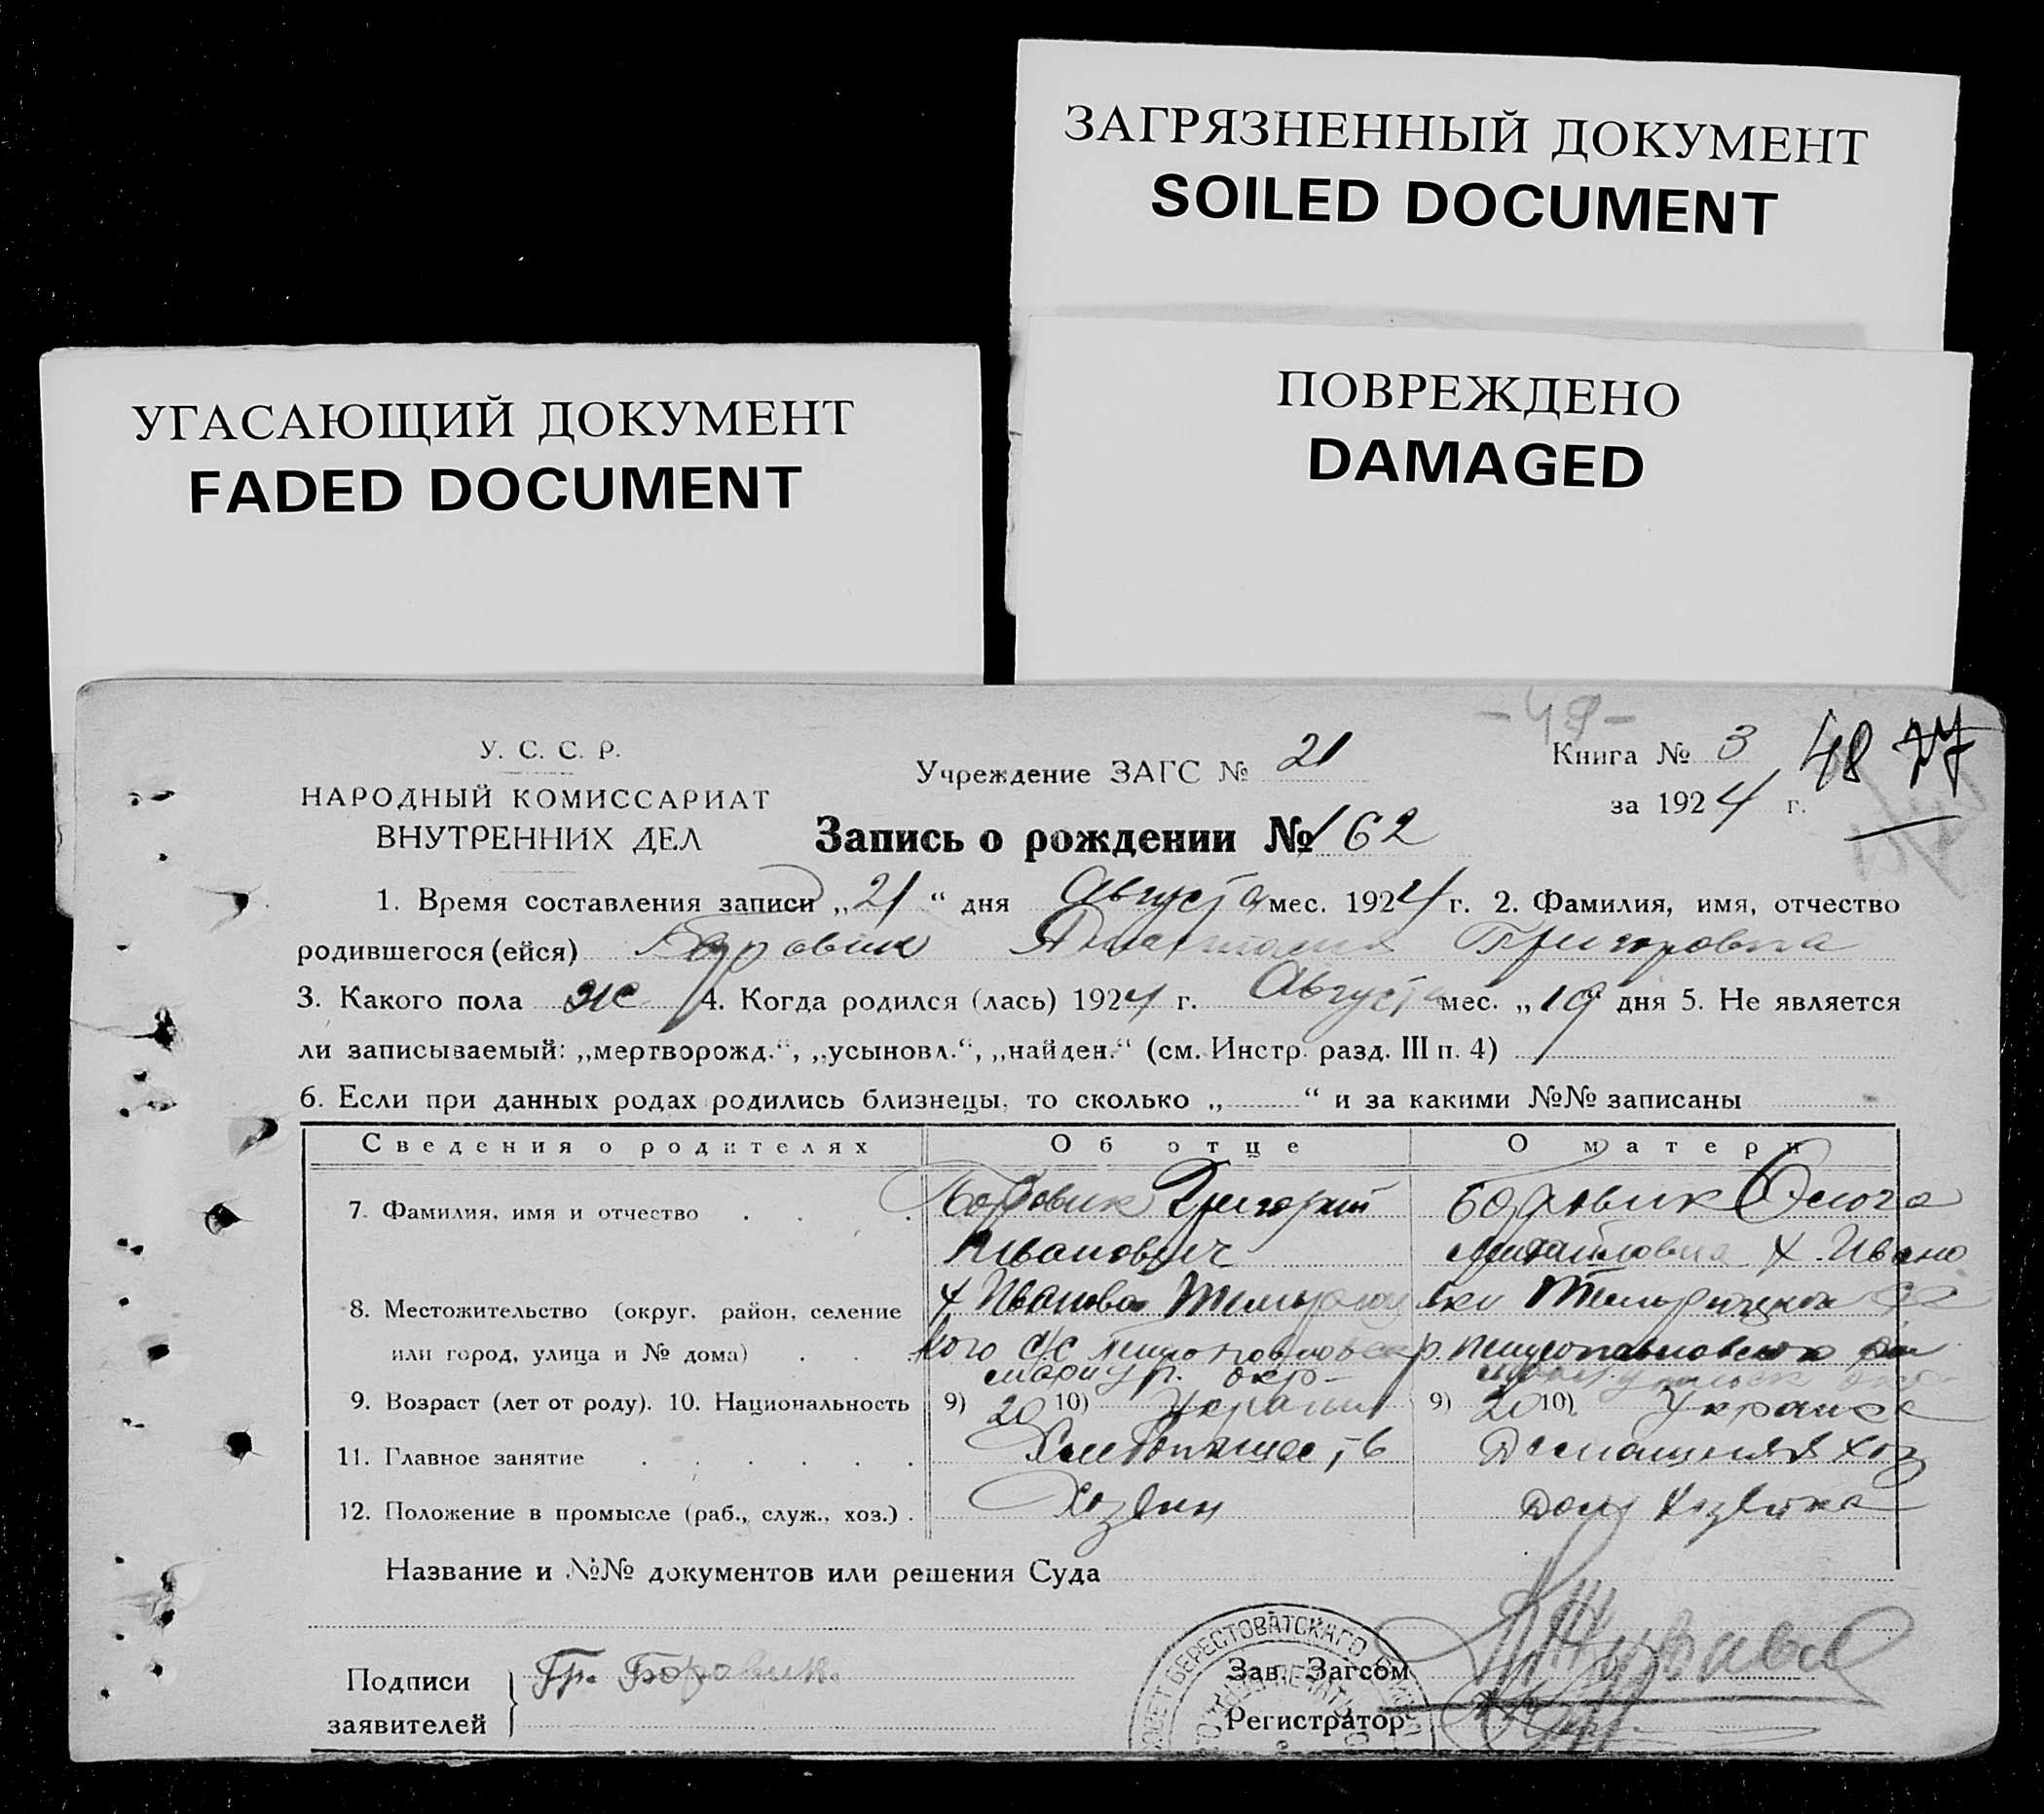 ЗАГРЯЗНЕННЫЙ ДОКУМЕНТ
SOILED DOCUMENT
УГАСАЮЩИЙ ДОКУМЕНТ
FADED DOCUMENT
ПОВРЕЖДЕНО
DAMAGED
-49-
У. С. С. Р.
НАРОДНЫЙ КОМИССАРИАТ
ВНУТРЕННИХ ДЕЛ
Учреждение ЗАГС № 21
Книга № 3 48
за 1924 г.
Запись о рождении № 162
1. Время составления записи „21“ дня Августа мес. 1924 г. 2. Фамилия, имя, отчество
родившегося (ейся) Боровик Анастасия Григоровна
3. Какого пола же 4. Когда родился (лась) 1924 г. Августа мес. „19 дня 5. Не является
ли записываемый: „мертворожд.“, „усыновл.“, „найден.“ (см. Инстр. разд. III п. 4)
6. Если при данных родах родились близнецы, то сколько „ “ и за какими №№ записаны
Сведения о родителях Об отце О матери
7. Фамилия, имя и отчество Боровик Григорий Боровик
Иванович Михайловна х. Ивано
8. Местожительство (округ, район, селение х Ивановка вки
или город, улица и № дома) кого с/с
Мариуп. окр-
9. Возраст (лет от роду). 10. Национальность 9) 20 10) Украин 9) 20 10) Украинс
11. Главное занятие Хлебопашеств Домашняя хоз
12. Положение в промысле (раб., служ., хоз.) Хозяин Дом Хозяйка
Название и №№ документов или решения Суда
БЕРЕСТОВАТСКАГО
Подписи
заявителей
Гр. Боровик
Зав. Загсом
Регистратор